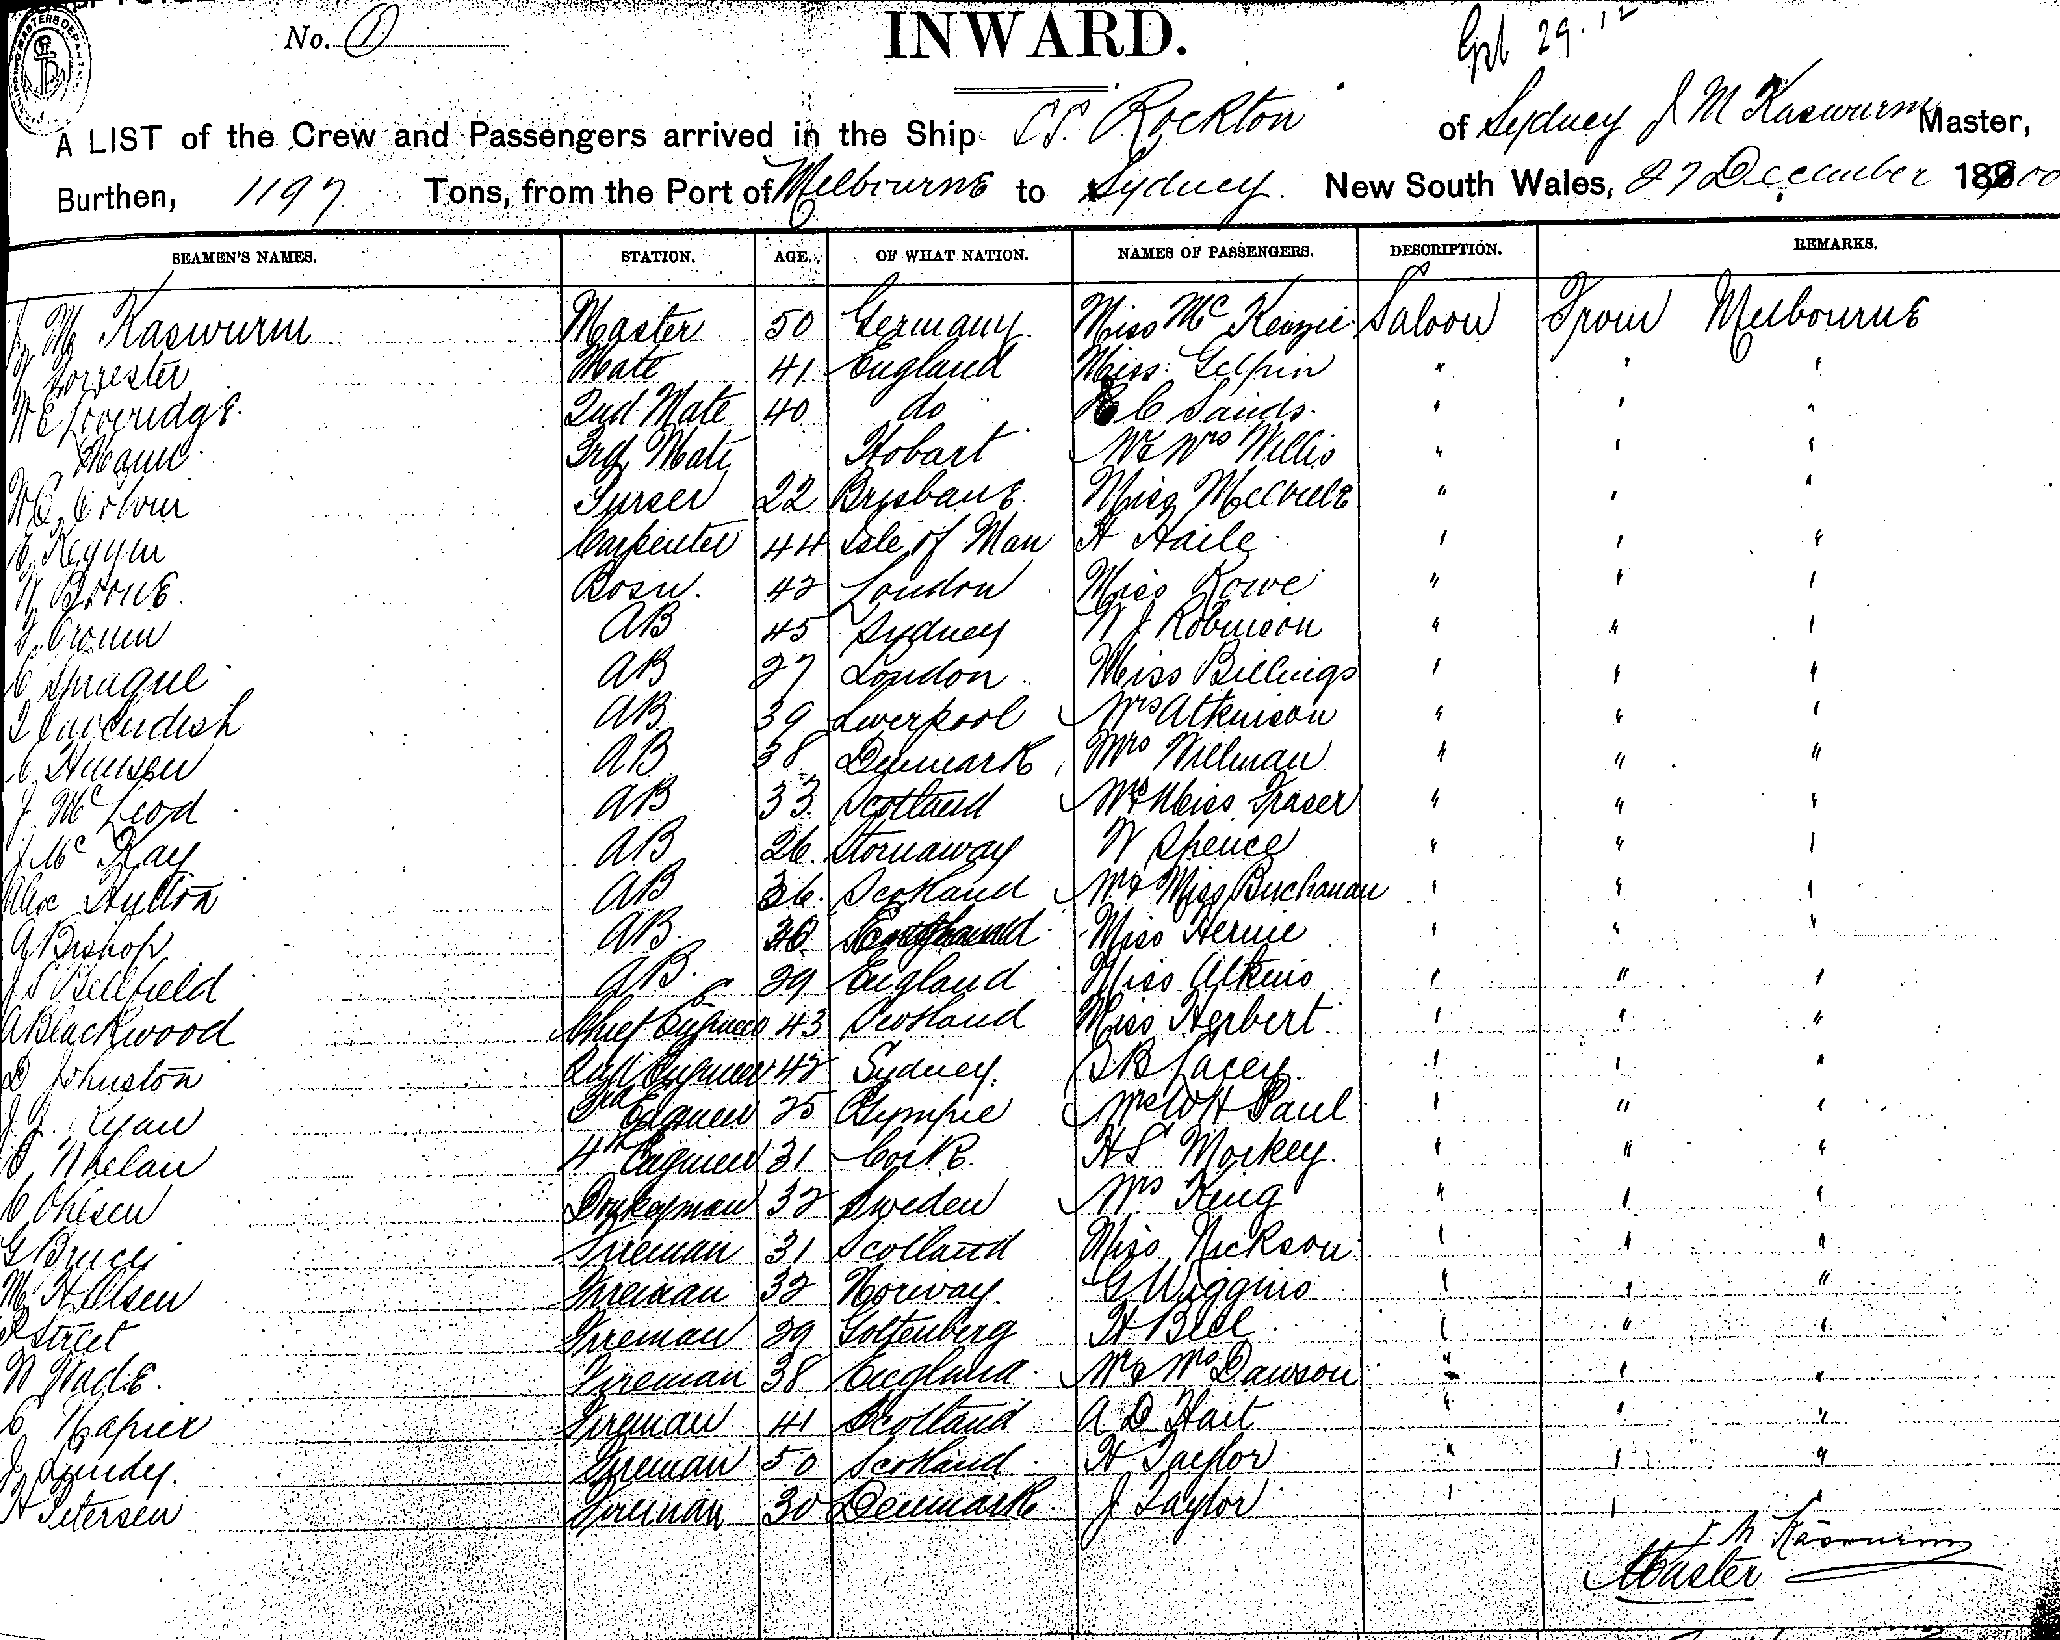 No. 1
INWARD.
29.12
A LIST of the Crew and Passengers arrived in the Ship SS. Rockton of Sydney J M Kaswurm Master,
Burthen, 1197 Tons, from the Port of Melbourne to Sydney. New South Wales, 27 December 1900
SEAMEN'S NAMES. STATION. AGE. OF WHAT NATION. NAMES OF PASSENGERS. DESCRIPTION. REMARKS.
J M Kaswurm Master 50 Germany Miss McKenzie Saloon From Melbourne
Forrester Mate 41 England Miss Gilpin " " "
W E Loveridge 2nd Mate 40 do C Sands " " "
Mayne 3rd Mate Hobart Mr & Mrs Willis " " "
W C Colvin Purser 22 Brisbane Miss Melville " " "
Carpenter 44 Isle of Man H Haile " " "
W Boone Bosn. 42 London Miss Rowe " " "
Cronin AB 45 Sydney W J Robinson " " "
C Sprague AB 27 London Miss Billings " " "
Cavendish AB 39 Liverpool Mrs Atkinson " " "
C Hansen AB 38 Denmark Mrs Willman " " "
J McLeod AB 33 Scotland Mr & Miss Fraser " " "
J McKay AB 26 Stornaway W Spence " " "
Alex Hutton AB 36 Scotland Mr & Miss Buchanan " " "
A Bishop AB 30 England Miss Hernie " " "
J S Bedfield AB. 29 England Miss Atkins " " "
A Blackwood Chief Engineer 43 Scotland Miss Herbert " " "
D Johnston 2nd Engineer 42 Sydney. B Lacey " " "
J J Ryan 3rd Engineer 25 Gympie W H Paul " " "
P Whelan 4th Engineer 31 Cork H S Morkey " " "
C Ohlsen Donkeyman 32 Sweden Mrs King " " "
G Bruce Fireman 31 Scotland Miss Nickson " " "
M Hilsen Fireman 32 Norway G Wiggins " " "
Street Fireman 29 Gottenberg H Bell " " "
W Wade. Fireman 38 England Mr & Mrs Dawson " " "
C Napier Fireman 41 Scotland A D Hait " " "
J Lundy. Fireman 50 Scotland H Taylor " " "
H Petersen Fireman 30 Denmark J Taylor " " "
J M Kaswurm
Master